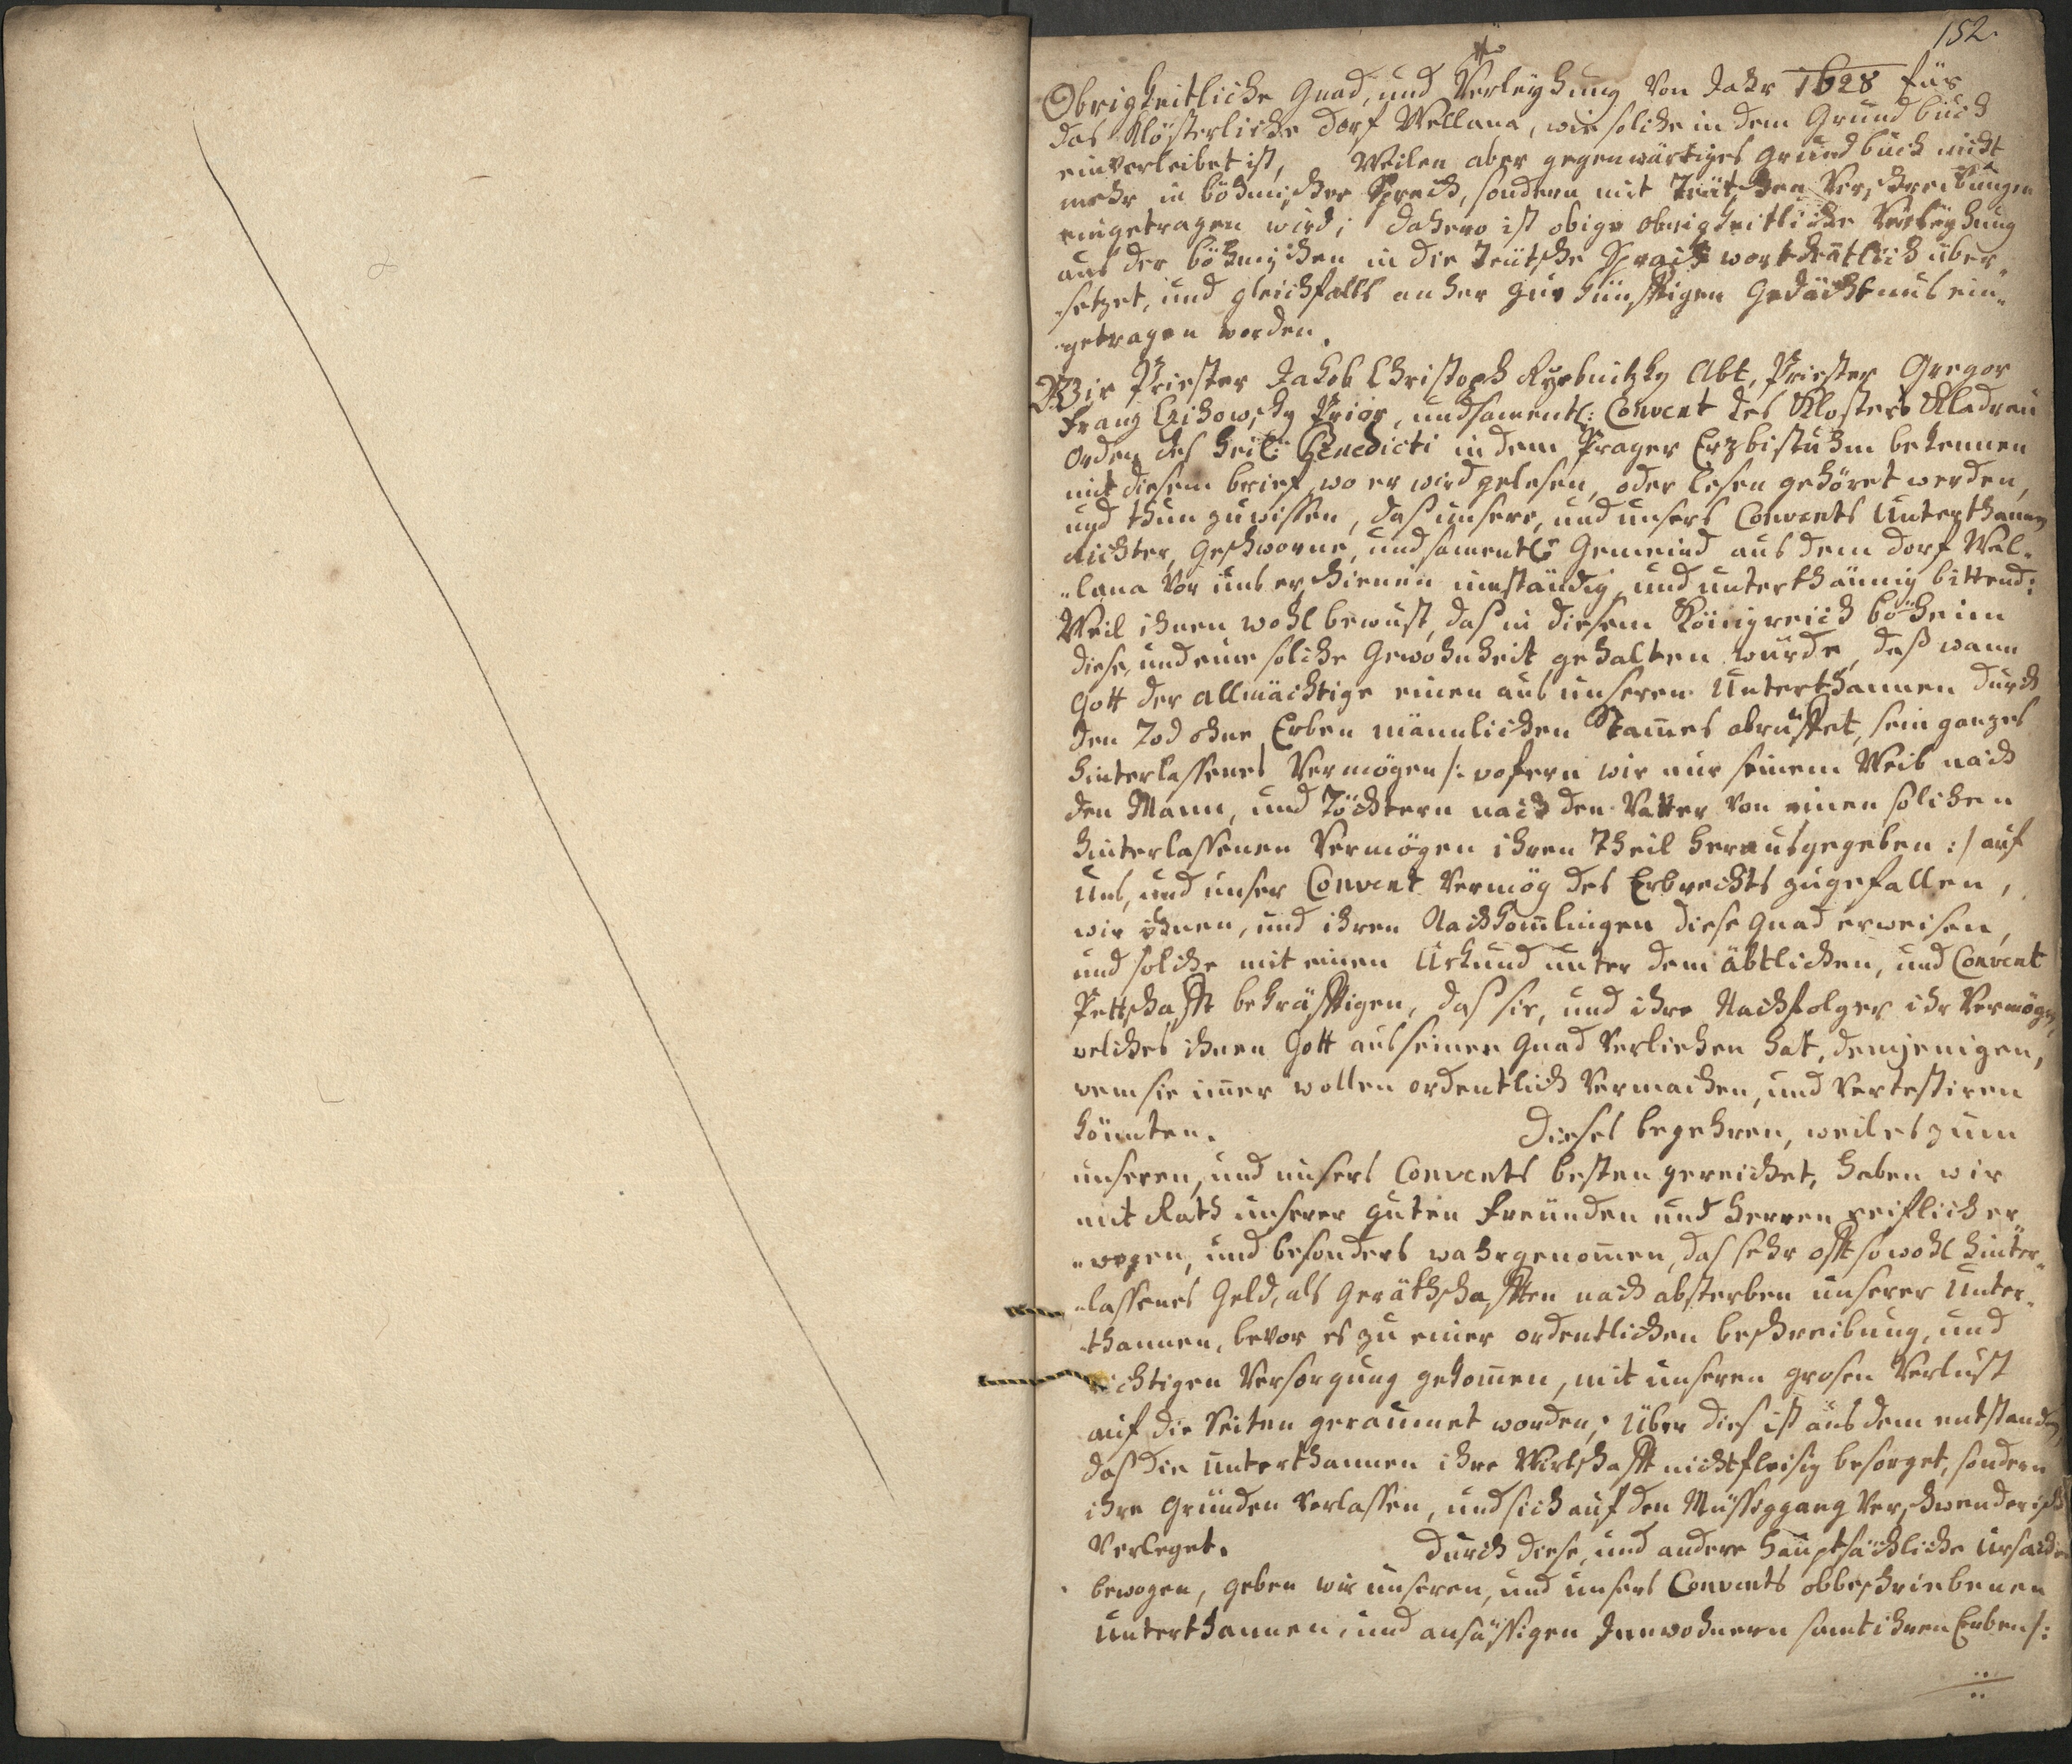 152.
Obrigkeitliche Gnad, und Verleÿhung von Jahr 1628 für
das Klösterliche Dorf Wellana, wie solche in dem Grundbuch
einverleibet ist, Weilen aber gegenwärtiges Grundbuch nicht
mehr in böhmischer Sprach, sondern mit Teütschen Verschreibungen
eingetragen wird; dahero ist obige obrigkeitliche Verleÿhung
aus der böhmischen in die Teütsche Sprach wortdeutlich über„
setzet, und gleichfalls anher zur künfftigen Gedächtnus ein„
getragen worden.
Wir Priester Jakob Christoph Ryebnitzky Abt, Priester Gregor
Franz Czikowsky Prior, und samentl: Convent des Klosters Kladrau
Orden des heil: Benedicti in dem Prager Erzbistuhm bekennen
mit diesem brief, wo er wird gelesen, oder lesen gehöret werden,
und thun zuwissen, das unsere, und unsers Convents Unterthanen
Richter, Geschworne, und samentl: Gemeind aus dem Dorf Wel„
„lana vor uns erschienen inständig, und unterthännig bittend:
Weil ihnen wohl bewust, das in diesem Königreich böheim
diese, und eine solche Gewohnheit gehalten wurde, daß wann
Gott der allmächtige einen aus unseren Unterthannen durch
den Tod ohne Erben männlichen Stam̄es abruffet, sein ganzes
hinterlassenes Vermögen /: wofern wir nur seinem Weib nach
den Mann, und Töchtern nach den Vatter von einen solchen
hinterlassenen Vermögen ihren Theil herausgegeben :/ auf
uns, und unser Convent vermög des Erbrechts zugefallen,
wir ihnen, und ihren Nachkom̄lingen diese Gnad erweisen,
und solche mit einen Urkund unter dem äbtlichen, und Convent
Pettschafft bekräfftigen, das sie, und ihre Nachfolger ihr Vermögen,
welches ihnen Gott aus seiner Gnad verliehen hat, demjenigen,
wem sie im̄er wollen ordentlich vermachen, und vertestiren
könnten. Dieses begehren, weil es zum
unseren, und unsers Convents besten gereichet, haben wir
mit Rath unserer guten Freünden und Herren reiflich er
„wogen, und besonders wahrgenom̄en, das sehr offt sowohl hinter„
„lassenes Geld, als Geräthschafften nach absterben unserer Unter„
thannen, bevor es zu einer ordentlichen beschreibung, und
richtigen Versorgung gekom̄en, mit unseren grosen Verlust
auf die Seiten geraumet worden; Über dies ist aus dem entstanden,
das die Unterthannen ihre Wirtschafft nicht fleisig besorget, sondern
ihre Gründen verlassen, und sich auf den Müssiggang verschwenderisch
verleget. Durch diese, und andere hauptsächliche Ursachen
bewogen, geben wir unseren, und unsers Convents obbeschriebenen
Unterthannen, und ansässigen Innwohnern samt ihren Erben /: